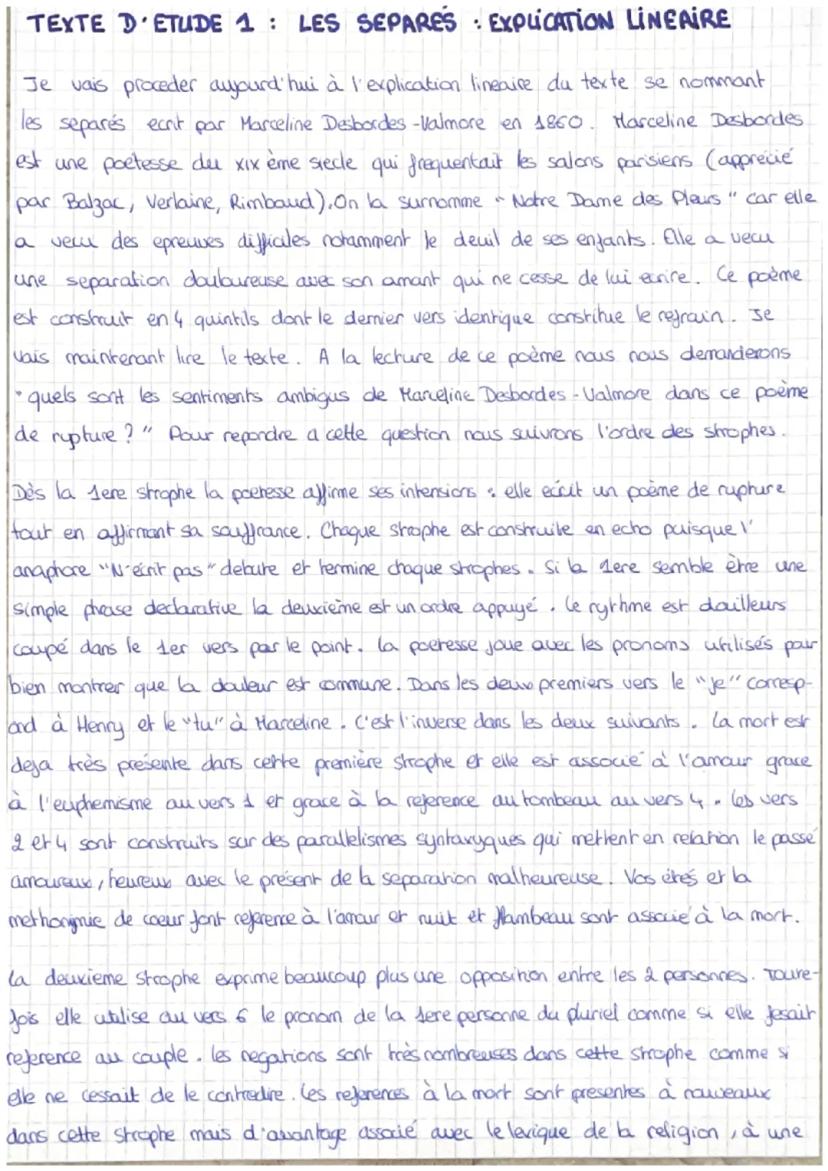 TEXTE D'ETUDE 1 : LES SEPARÉS : EXPLICATION LINEAIRE
Je vais proceder aujourd'hui à l'explication lineaire du texte se nommant
les separés ecrit par Marceline Desbordes-Valmore en 1860. Marceline Desbordes
est une poetesse du XIX ème siecle qui frequentait les salons parisiens (apprécié
par Balzac, Verlaine, Rimbaud). On la surnomme "Notre Dame des Pleurs" car elle
a vecu des epreuves difficiles notamment le deuil de ses enfants. Elle a vecu
une separation douloureuse avec son amant qui ne cesse de lui ecrire. Ce poème
est construit en 4 quintils dont le dernier vers identique constitue le refrain. Je
vais maintenant lire le texte. A la lecture de ce poème nous nous demanderons
"quels sont les sentiments ambigus de Marceline Desbordes-Valmore dans ce poème
de rupture ?" Pour repondre a cette question nous suivrons l'ordre des strophes.
Dès la 1ere strophe la poetesse affirme ses intensions : elle ecrit un poème de rupture
tout en affirmant sa souffrance. Chaque strophe est construite en echo puisque l'
anaphore "N'écrit pas" debute et termine chaque strophes. Si la 1ere semble être une
simple phrase declarative la deuxieme est un ordre appuyé. Le rythme est dailleurs
coupé dans le 1er vers par le point. La poetesse joue avec les pronoms utilisés pour
bien montrer que la douleur est commune. Dans les deux premiers vers le "je" corresp-
ond à Henry et le "tu" à Marceline. C'est l'inverse dans les deux suivants. La mort est
deja très présente dans cette première strophe et elle est associé à l'amour grace
à l'euphemisme au vers 1 et grace à la reference au tombeau au vers 4. Les vers
2 et 4 sont construits sur des parallelismes syntaxyques qui mettent en relation le passé
amoureux, heureux avec le présent de la separation malheureuse. Vos étés et la
methonymie de coeur font reference à l'amour et nuit et flambeau sont associé à la mort.
La deuxieme strophe exprime beaucoup plus une opposition entre les 2 personnes. Toute-
fois elle utilise au vers 6 le pronom de la 1ere personne du pluriel comme si elle fesait
reference au couple. Les negations sont très nombreuses dans cette strophe comme si
elle ne cessait de le contredire. Les references à la mort sont presentes à nouveaux
dans cette strophe mais d'avantage associé avec le lexique de la religion, à une